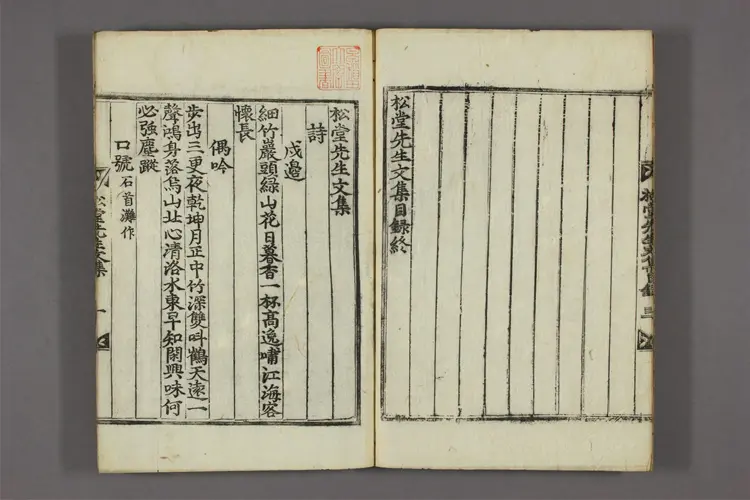 松堂先生文集目錄終
松堂先生文集
詩
戍邊
細竹巖頭綠山花日暮香一杯高逸嘯江海客
懷長
偶吟
步出三更夜乾坤月正中竹深雙呌鶴天遠一
聲鴻身落烏山北心清洛水東早知閑興味何
必強塵蹤
口號石首灘作
松堂先生文集
一